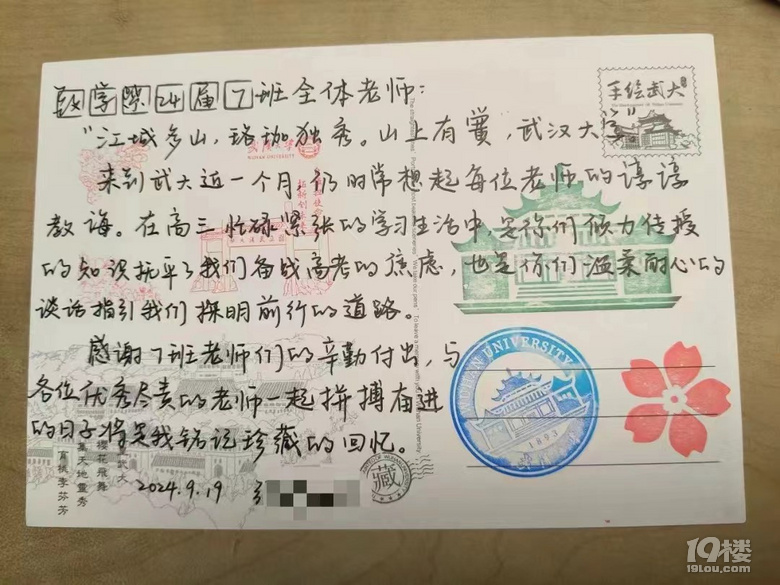 致学院24届7班全体老师：
“江城多山，珞珈独秀。山上有黉，武汉大学”
来到武大近一个月，仍时常想起每位老师的谆谆
教诲。在高三忙碌紧张的学习生活中，是你们倾力传授
的知识抚平了我们备战高考的焦虑，也是你们温柔耐心的
谈话指引我们探明前行的道路。
感谢7班老师们的辛勤付出，与
各位优秀尽责的老师一起拼搏奋进
的日子将是我铭记珍藏的回忆。
2024.9.19
手绘武大
武漢大學
WUHAN UNIVERSITY
WUHAN UNIVERSITY
1893
藏
櫻花飛舞
育桃李芬芳
19楼
19lou.com